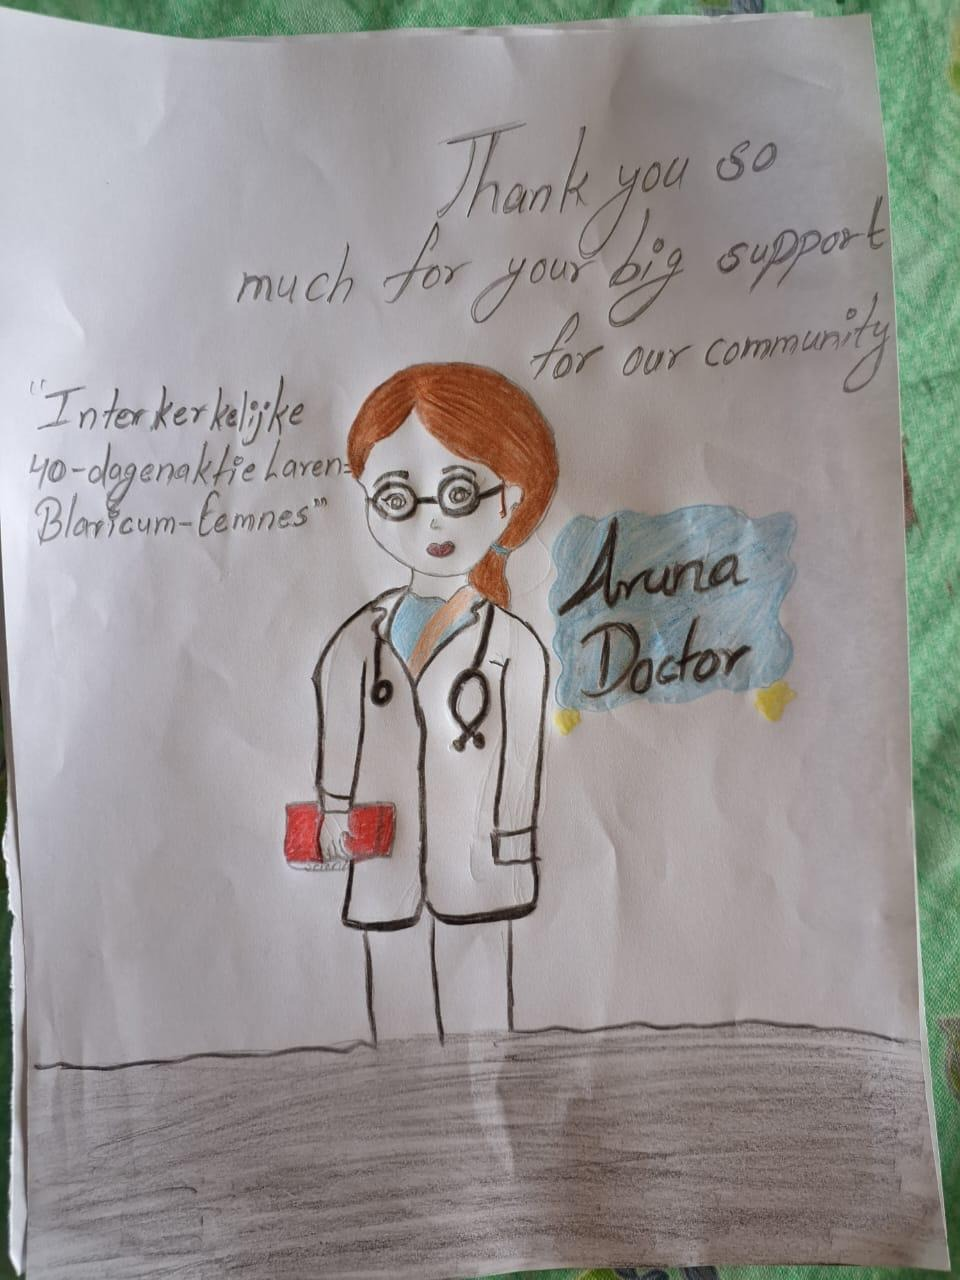 Thank you so
much for your big support
for our community
"Interkerkelijke
40-dagenaktie Laren=
Blaricum-Eemnes"
Aruna
Doctor